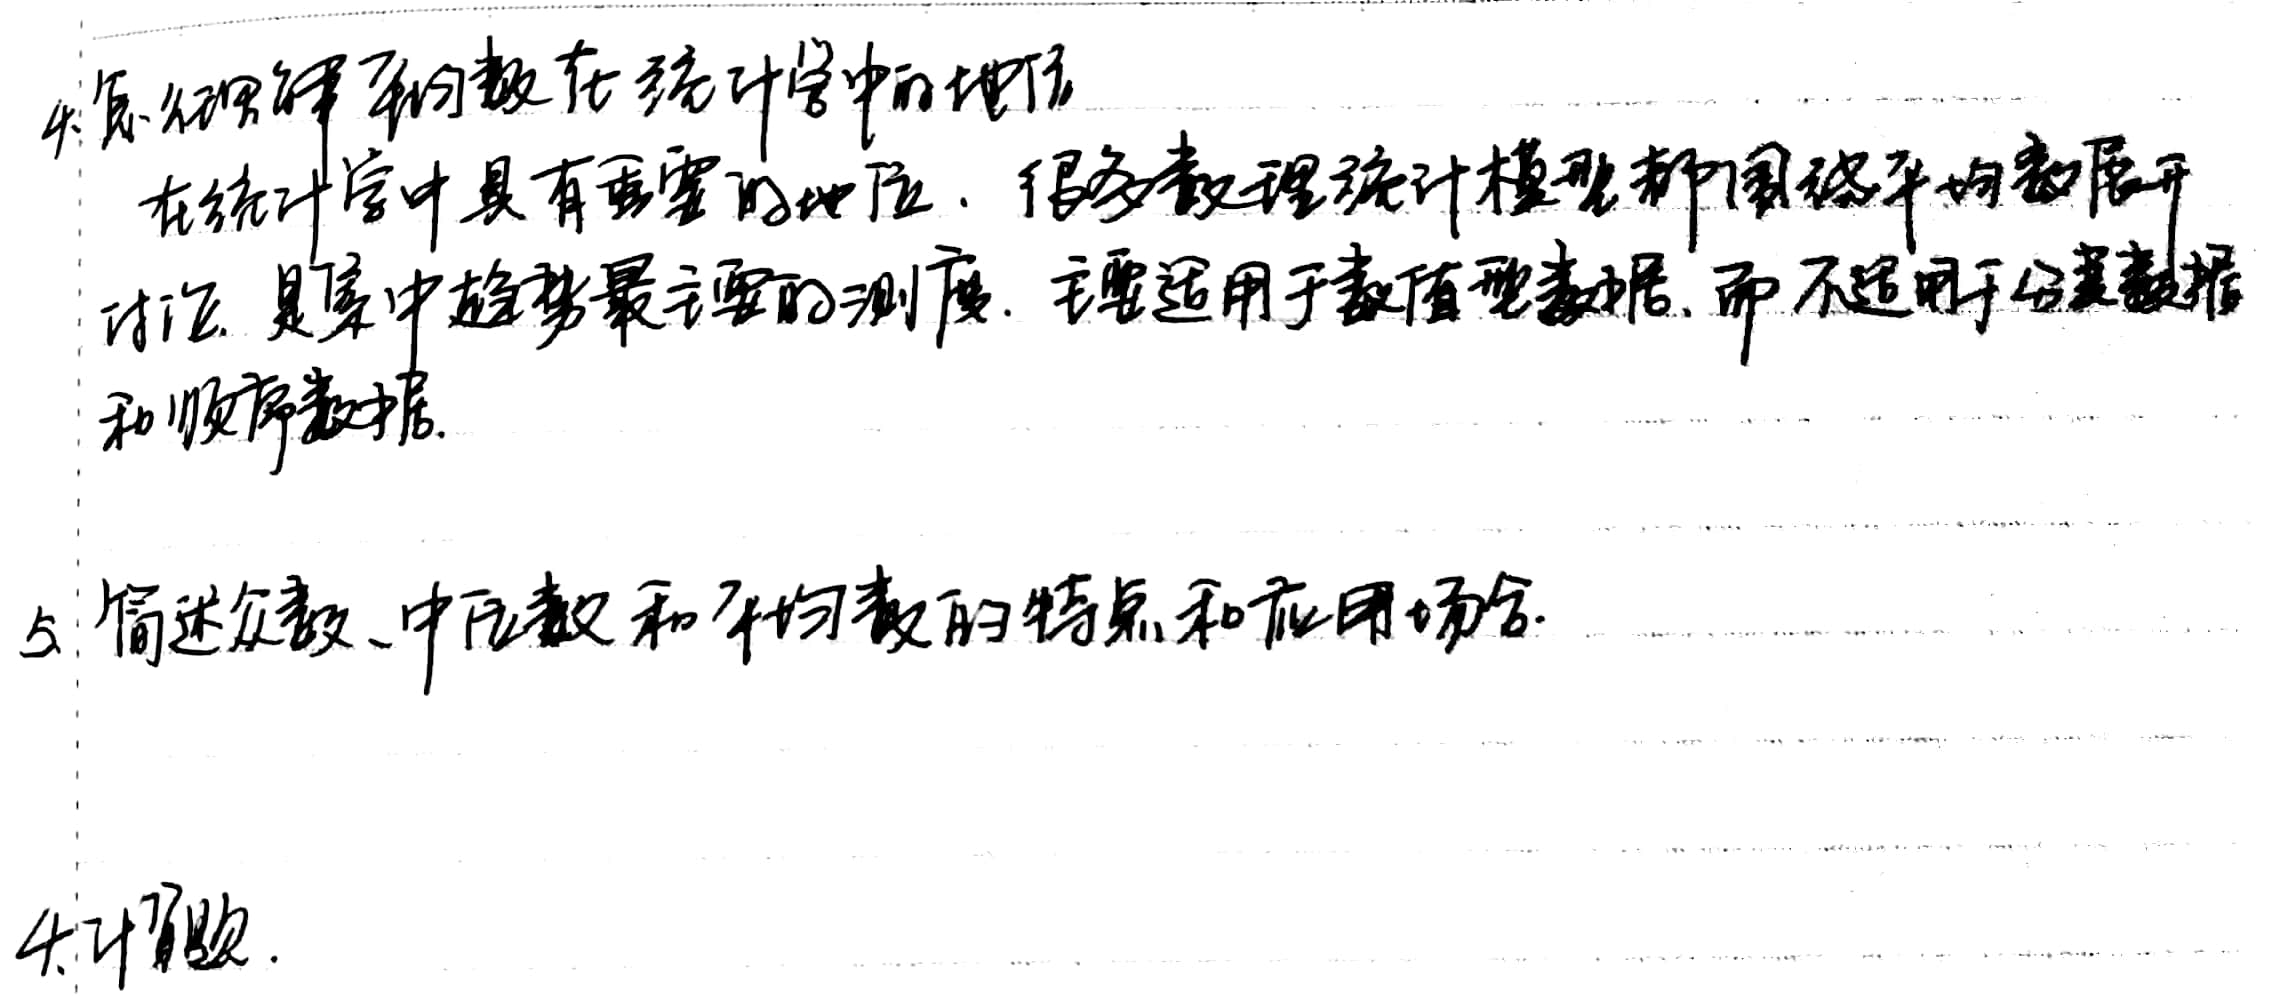 4. 怎么理解平均数在统计学中的地位
在统计学中具有重要的地位. 很多数理统计模型都围绕平均数展开
讨论. 是集中趋势最主要的测度. 主要适用于数值型数据. 而不适用于分类数据
和顺序数据.
5. 简述众数、中位数和平均数的特点和应用场合.
4. 计算题.